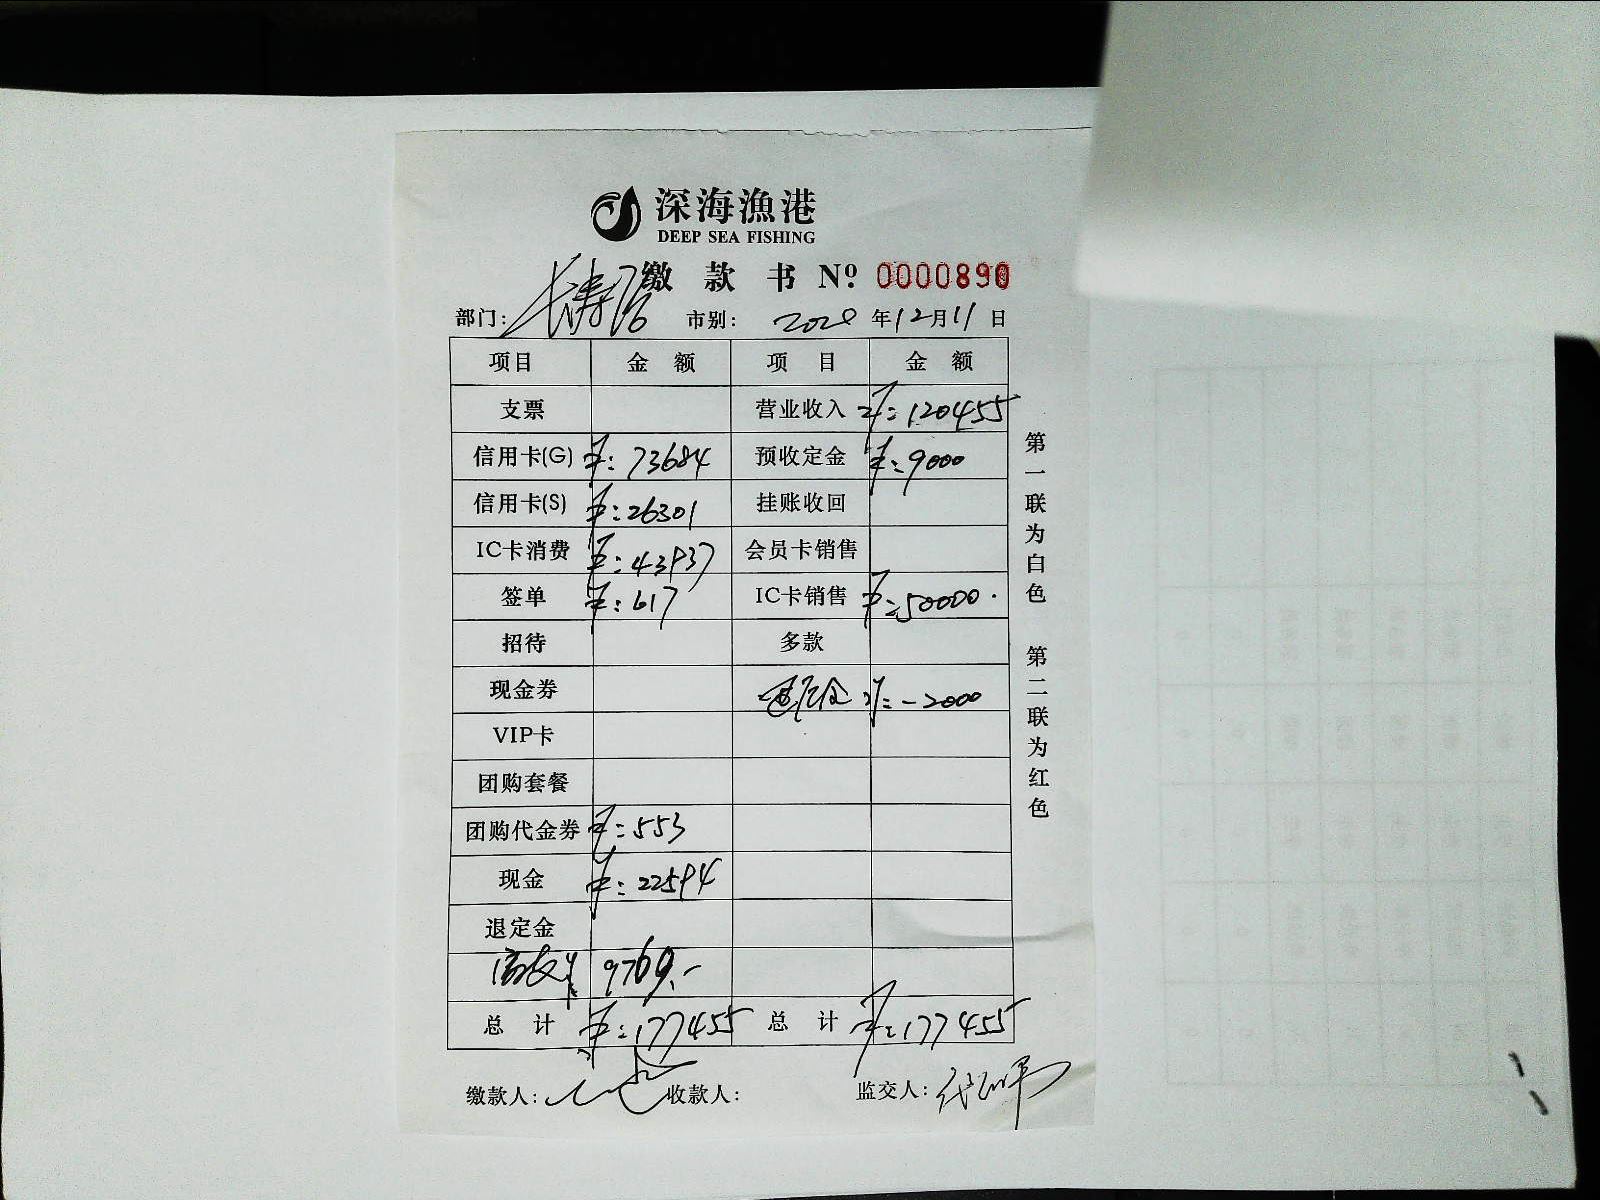 深海漁港
DEEP SEA FISHING
缴款书 Nº 0000890
部门: 长寿路 市别: 2020年12月11日
项目 金额 项目 金额
支票 营业收入 ¥:120455
信用卡(G) ¥:73684 预收定金 ¥:9000
信用卡(S) ¥:26301 挂账收回
IC卡消费 ¥:43937 会员卡销售
签单 ¥:617 IC卡销售 ¥:50000.
招待 多款
现金券 退定金 ¥:-2000
VIP卡
团购套餐
团购代金券 ¥:553
现金 ¥:22594
退定金
¥ 9769.-
总计 ¥:177455 总计 ¥:177455
缴款人: 收款人: 监交人:
第一联为白色 第二联为红色